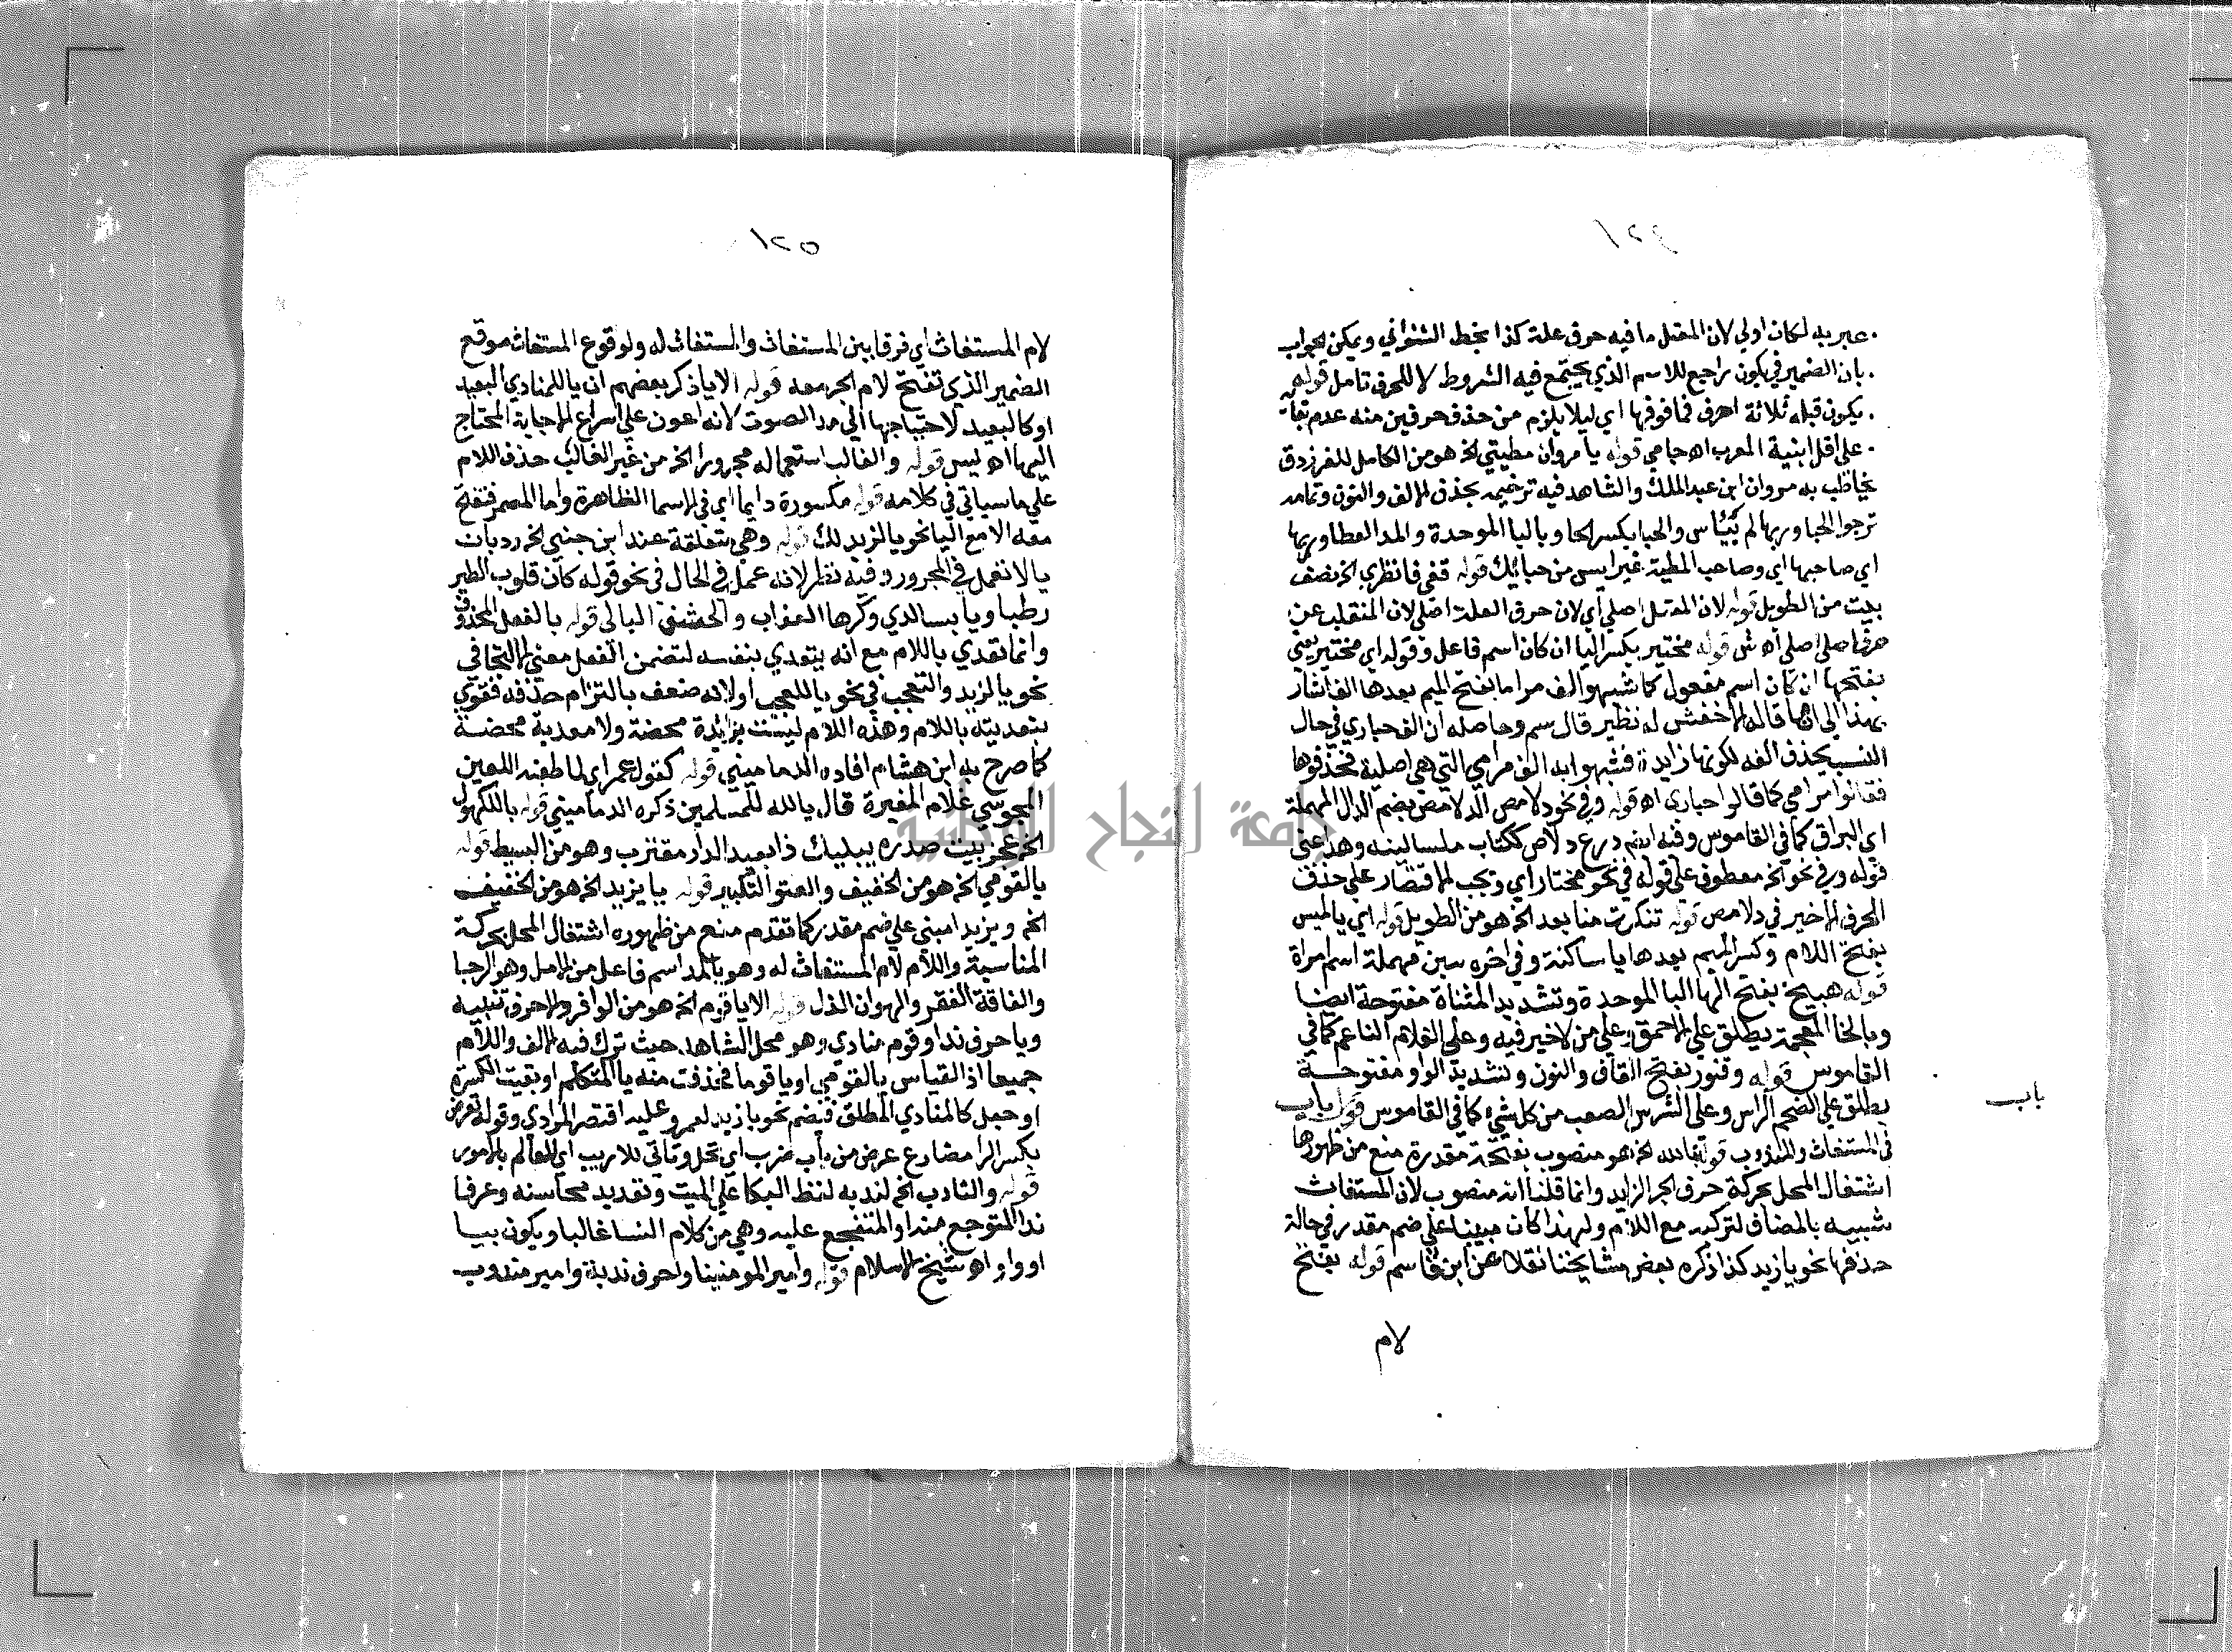 ١٢٤
عبر به لكان اولي لان المعتل ما فيه حرف علة كذا بخط الشنواني ويمكن الجواب
بان الضمير في يكون راجع للاسم الذي يجتمع فيه الشروط لا للحرف تامل قوله
يكون قبله ثلاثة احرف فما فوقها اي ليلا يلزم من حذف حرفين منه عدم بقائه
على اقل ابنية المعرب اه جامي قوله يا مروان مطيتي الخ هو من الكامل للفرزدق
يخاطب به مروان ابن عبد الملك والشاهد فيه ترخيمه بحذف الالف والنون وتمامه
ترجوا الحبا وربها لم يياس والحبا بكسر الحا وبالبا الموحدة والمد العطا وربها
اي صاحبها اي وصاحب المطية غير ايس من حبائك قوله قفي فانظري الخ نصف
بيت من الطويل قوله لان المعتل اصلي اي لان حرف العلة اصلي لان المنقلب عن
حرف اصلي اصلي اه ش قوله مختير بكسر اليا ان كان اسم فاعل وقوله اي مختير يعني
بفتحها ان كان اسم مفعول كما شبهوا الف مراما بفتح الميم بعدها الف اشار
بهذا الى ان ما قاله الاخفش له نظير قال سم وحاصله ان الف حباري في حال
النسب يحذف الفه لكونها زايدة فشبهوا به الف مرامي التي هي اصلية فحذفوها
فقالوا مرامي كما قالوا حباري اه قوله وفي نحو دلامص الدلامص بضم الدال المهملة
اي البراق كما في القاموس وفيه ايضا درع دلاص ككتاب ملسا لينه وهذ عني
قوله وفي نحو الخ معطوف على قوله في نحو مختار اي ويجب الاقتصار على حذف
الحرف الاخير في دلامص قوله تنكرت منا بعد الخ هو من الطويل قوله اي يا لميس
بفتح اللام وكسر الميم بعدها يا ساكنة وفي اخره سين مهملة اسم امراة
قوله هبيخ بفتح الها البا الموحدة وتشديد المثناة مفتوحة ايضا
وبالخا المعجمة يطلق علي الاحمق وعلي من لا خير فيه وعلي الغلام الناعم كما في
القاموس قوله وقنور بفتح القاف والنون وتشديد الواو مفتوحة
يطلق علي الضخم الراس وعلي الشرس الصعب من كل شي كما في القاموس قوله باب
باب
في المستغاث والمندوب قوله يا لله الخ هو منصوب بفتحة مقدرة منع من ظهورها
اشتغال المحل بحركة حرف الجر الزايد وانما قلنا انه منصوب لان المستغاث
شبيه بالمضاف لتركبه مع اللام ولهذا كان مبنيا علي ضم مقدر في حالة
حذفها نحو يا زيد كذا ذكره بعض مشايخنا نقلا عن ابن قاسم قوله بفتح
لام
١٢٥
لام المستغاث اي فرقا بين المستغاث والمستغاث له ولوقوع المستغاث موقع
الضمير الذي تفتح لام الجر معه قوله الا يا ذكر بعضهم ان يا للمنادي البعيد
او كالبعيد لاحتياجها الي مد الصوت لانه اعون علي اسراع الاجابة المحتاج
اليها اه ليس قوله والغالب استعماله مجرورا الخ من غير الغالب حذف اللام
علي ما سياتي في كلامه قوله مكسورة دايما اي في الاسما الظاهرة واما المضمر فتفتح
معه الا مع اليا نحو يا لزيد لك قوله وهي متعلقة عند ابن جني الخ رد بان
يا لا تعمل في المجرور وفيه نظر لانه عمل في الحال في نحو قوله كان قلوب الطير
رطبا ويابسا لدي وكرها العناب والحشف البالي قوله بالفعل المحذوف
وانما تعدي باللام مع انه يتعدي بنفسه لتضمن الفعل معني الالتجا في
نحو يا لزيد والتعجب في نحو يا للعجب او لانه ضعف بالتزام حذفه فقوي
بتعديته باللام وهذه اللام ليست بزايدة محضة ولا معدية محضة
كما صرح به ابن هشام افاده الدماميني قوله كقول عمر اي لما طعنه اللعين
المجوسي غلام المغيرة قال يا لله للمسلمين ذكره الدماميني قوله يا للكهول
الخ عجز بيت صدره يبكيك ذا بعيد الدار مغترب وهو من البسيط قوله
يا لقومي الخ هو من الخفيف والعتو التكبير قوله يا يزيد الخ هو من الخفيف
الخ ويزيدا مبني علي ضم مقدر كما تقدم منع من ظهوره اشتغال المحل بحركة
المناسبة واللام لام المستغاث له وهو بالمد اسم فاعل من الامل وهو الرجا
والفاقة الفقر والهوان الذل قوله الا يا قوم الخ هو من الوافر والا حرف تنبيه
ويا حرف ندا وقوم منادي وهو محل الشاهد حيث ترك فيه الالف واللام
جميعا اذ القياس يا لقومي او يا قوما فحذفت منه يا المتكلم او بقيت الكسرة
او جعل كالمنادي المطلق فيضم نحو يا زيد لعمرو وعليه اقتصر المرادي وقوله تعرض
بكسر الرا مضارع عرض من باب ضرب اي تحل وتاتي للاريب اي للعالم بالامور
قوله والنادب الخ لندبه لفظ البكا علي الميت وتعديد محاسنه وعرفا
ندا المتوجع منه او المتفجع عليه وهي من كلام النسا غالبا ويكون بيا
او واو اه شيخ الاسلام قوله وامير المومنينا واحرف ندبة وامير مندوب
جامعة النجاح الوطنية